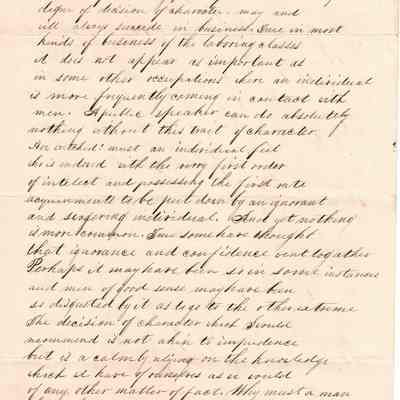 degree of decision of character. may and
will always succede in business. True in most
kinds of buseness of the laboring classes
it does not appear as important as
in some other occupations where an individual
is more frequently coming in contact with
men. A public speaker can do absolutely
nothing without this trait of character.
how must an individual feel
who is endowed with the very first order
of intelect and possessing the first rate
acquirements to be put down by an ignorant
and individual. And yet nothing
is more common. Some have thought
that ignorance and confidence went together
Perhaps it may have been so in some instances
and men of good sense may have been
so disgusted by it as to go to the other extreme
The decision of character which I would
recommend is not akin to impudence
but is a calmly on the knowledge
which it have of ourselves as we would
of any other matter of fact. Why must a man